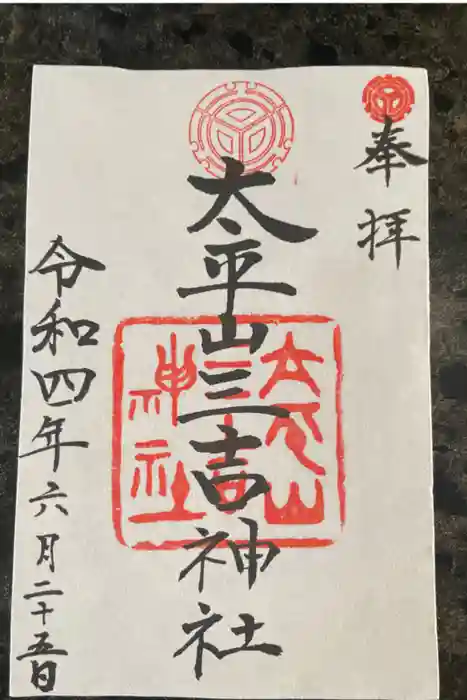 奉拝
太平山三吉神社
令和四年六月二十五日